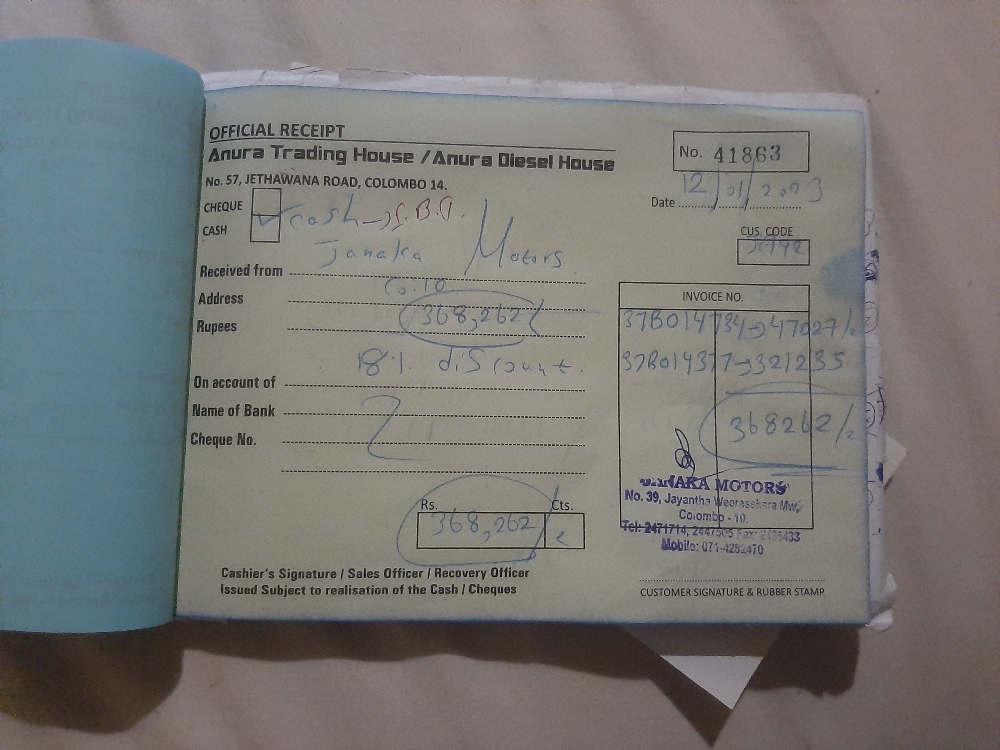 OFFICIAL RECEIPT
Anura Trading House / Anura Diesel House
No. 57, JETHAWANA ROAD, COLOMBO 14.
No. 41863
Date 12/01/2023
CHEQUE
CASH
cash → S.B.A.
CUS. CODE
Received from Janaka Motors
Address Co.10
Rupees 368,262/
18% discount.
On account of
Name of Bank
Cheque No.
Rs. Cts.
368,262/
Cashier's Signature / Sales Officer / Recovery Officer
Issued Subject to realisation of the Cash / Cheques
INVOICE NO.
37B014734→47027/
37B014377→321235
368262/
JANAKA MOTORS
No. 39, Jayantha Weerasekara Mw,
Colombo - 10.
Tel: 2471714, 2447505 Fax:
Mobile: 071-4282470
CUSTOMER SIGNATURE & RUBBER STAMP